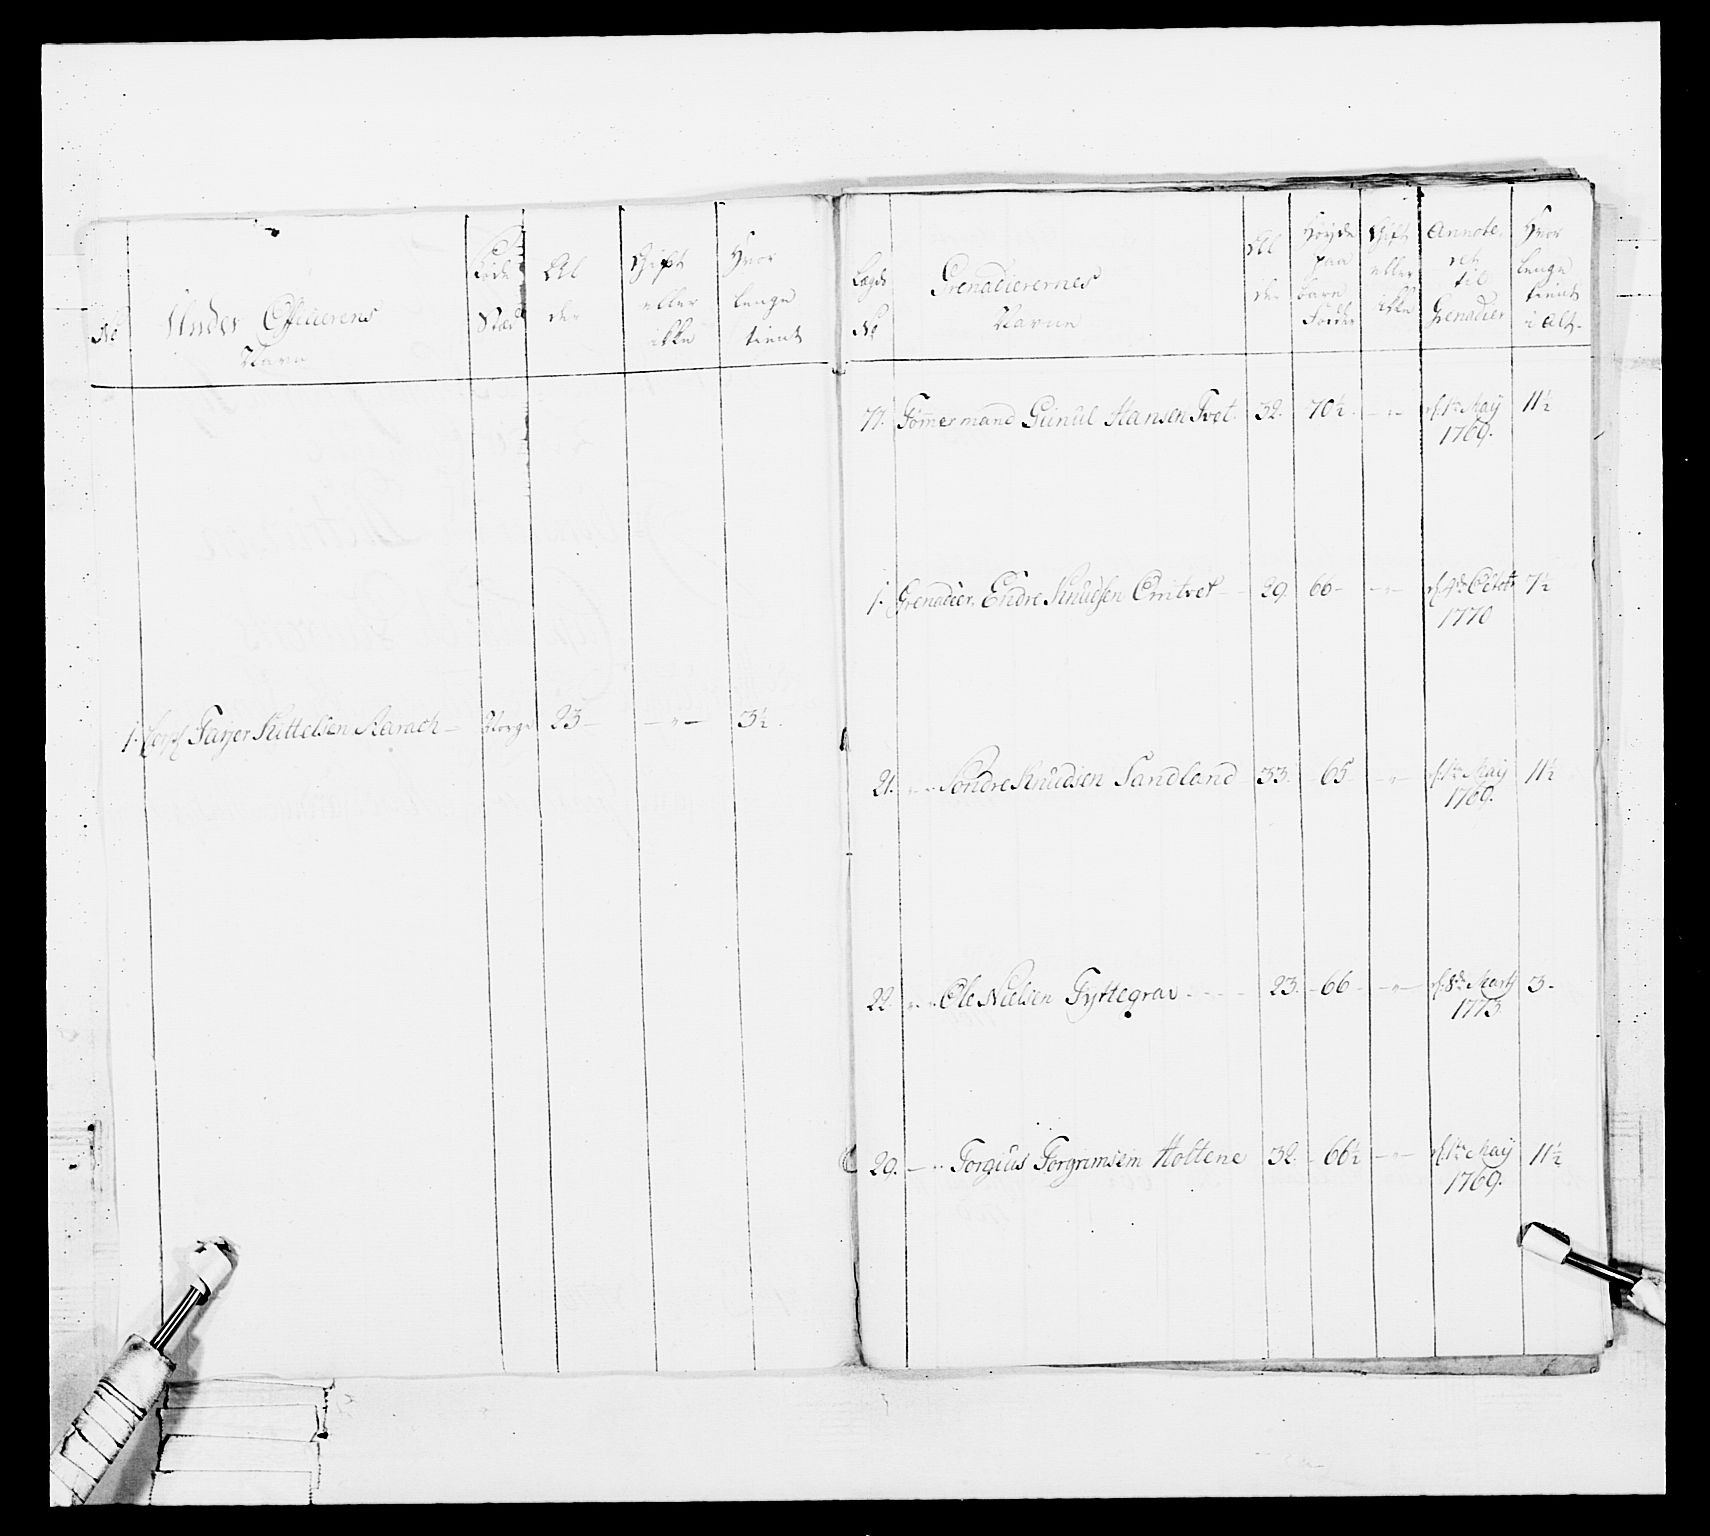 No
Under Officierens
Navn
Føde
Stæd
Al
der
Gift
eller
ikke
Hvor
lenge
tient
1. Corp. Tarjer Kittelsen Aarach — Norge 23 — — " — 3½.
Lægds
No
Grenadierernes
Navne
Al
der
Høyde
paa
bare
Fødder
Gift
eller
ikke
Annote-
ret
til
Grenadier
Hvor
lenge
tient
i alt.
77. Tømmermand Gunul Hansen Tvet. 32. 70½. — " — d. 1te Maÿ 11½
1769.
1. Grenadier. Endre Knudsen 29 66 — — " — d. 4de Octobr 7½
1770
21. " " Søndre Knudsen Sandland 33. 65 — " — d. 1te Maÿ 11½
1769.
22. " " Ole Nielsen Tyttegrav - - - - 23. 66 — " — d. 8de Martÿ 3 —
1773.
29. — " Torgius Torgrimsen Holtene 32. 66½ — " — d. 1te Maÿ 11½
1769.